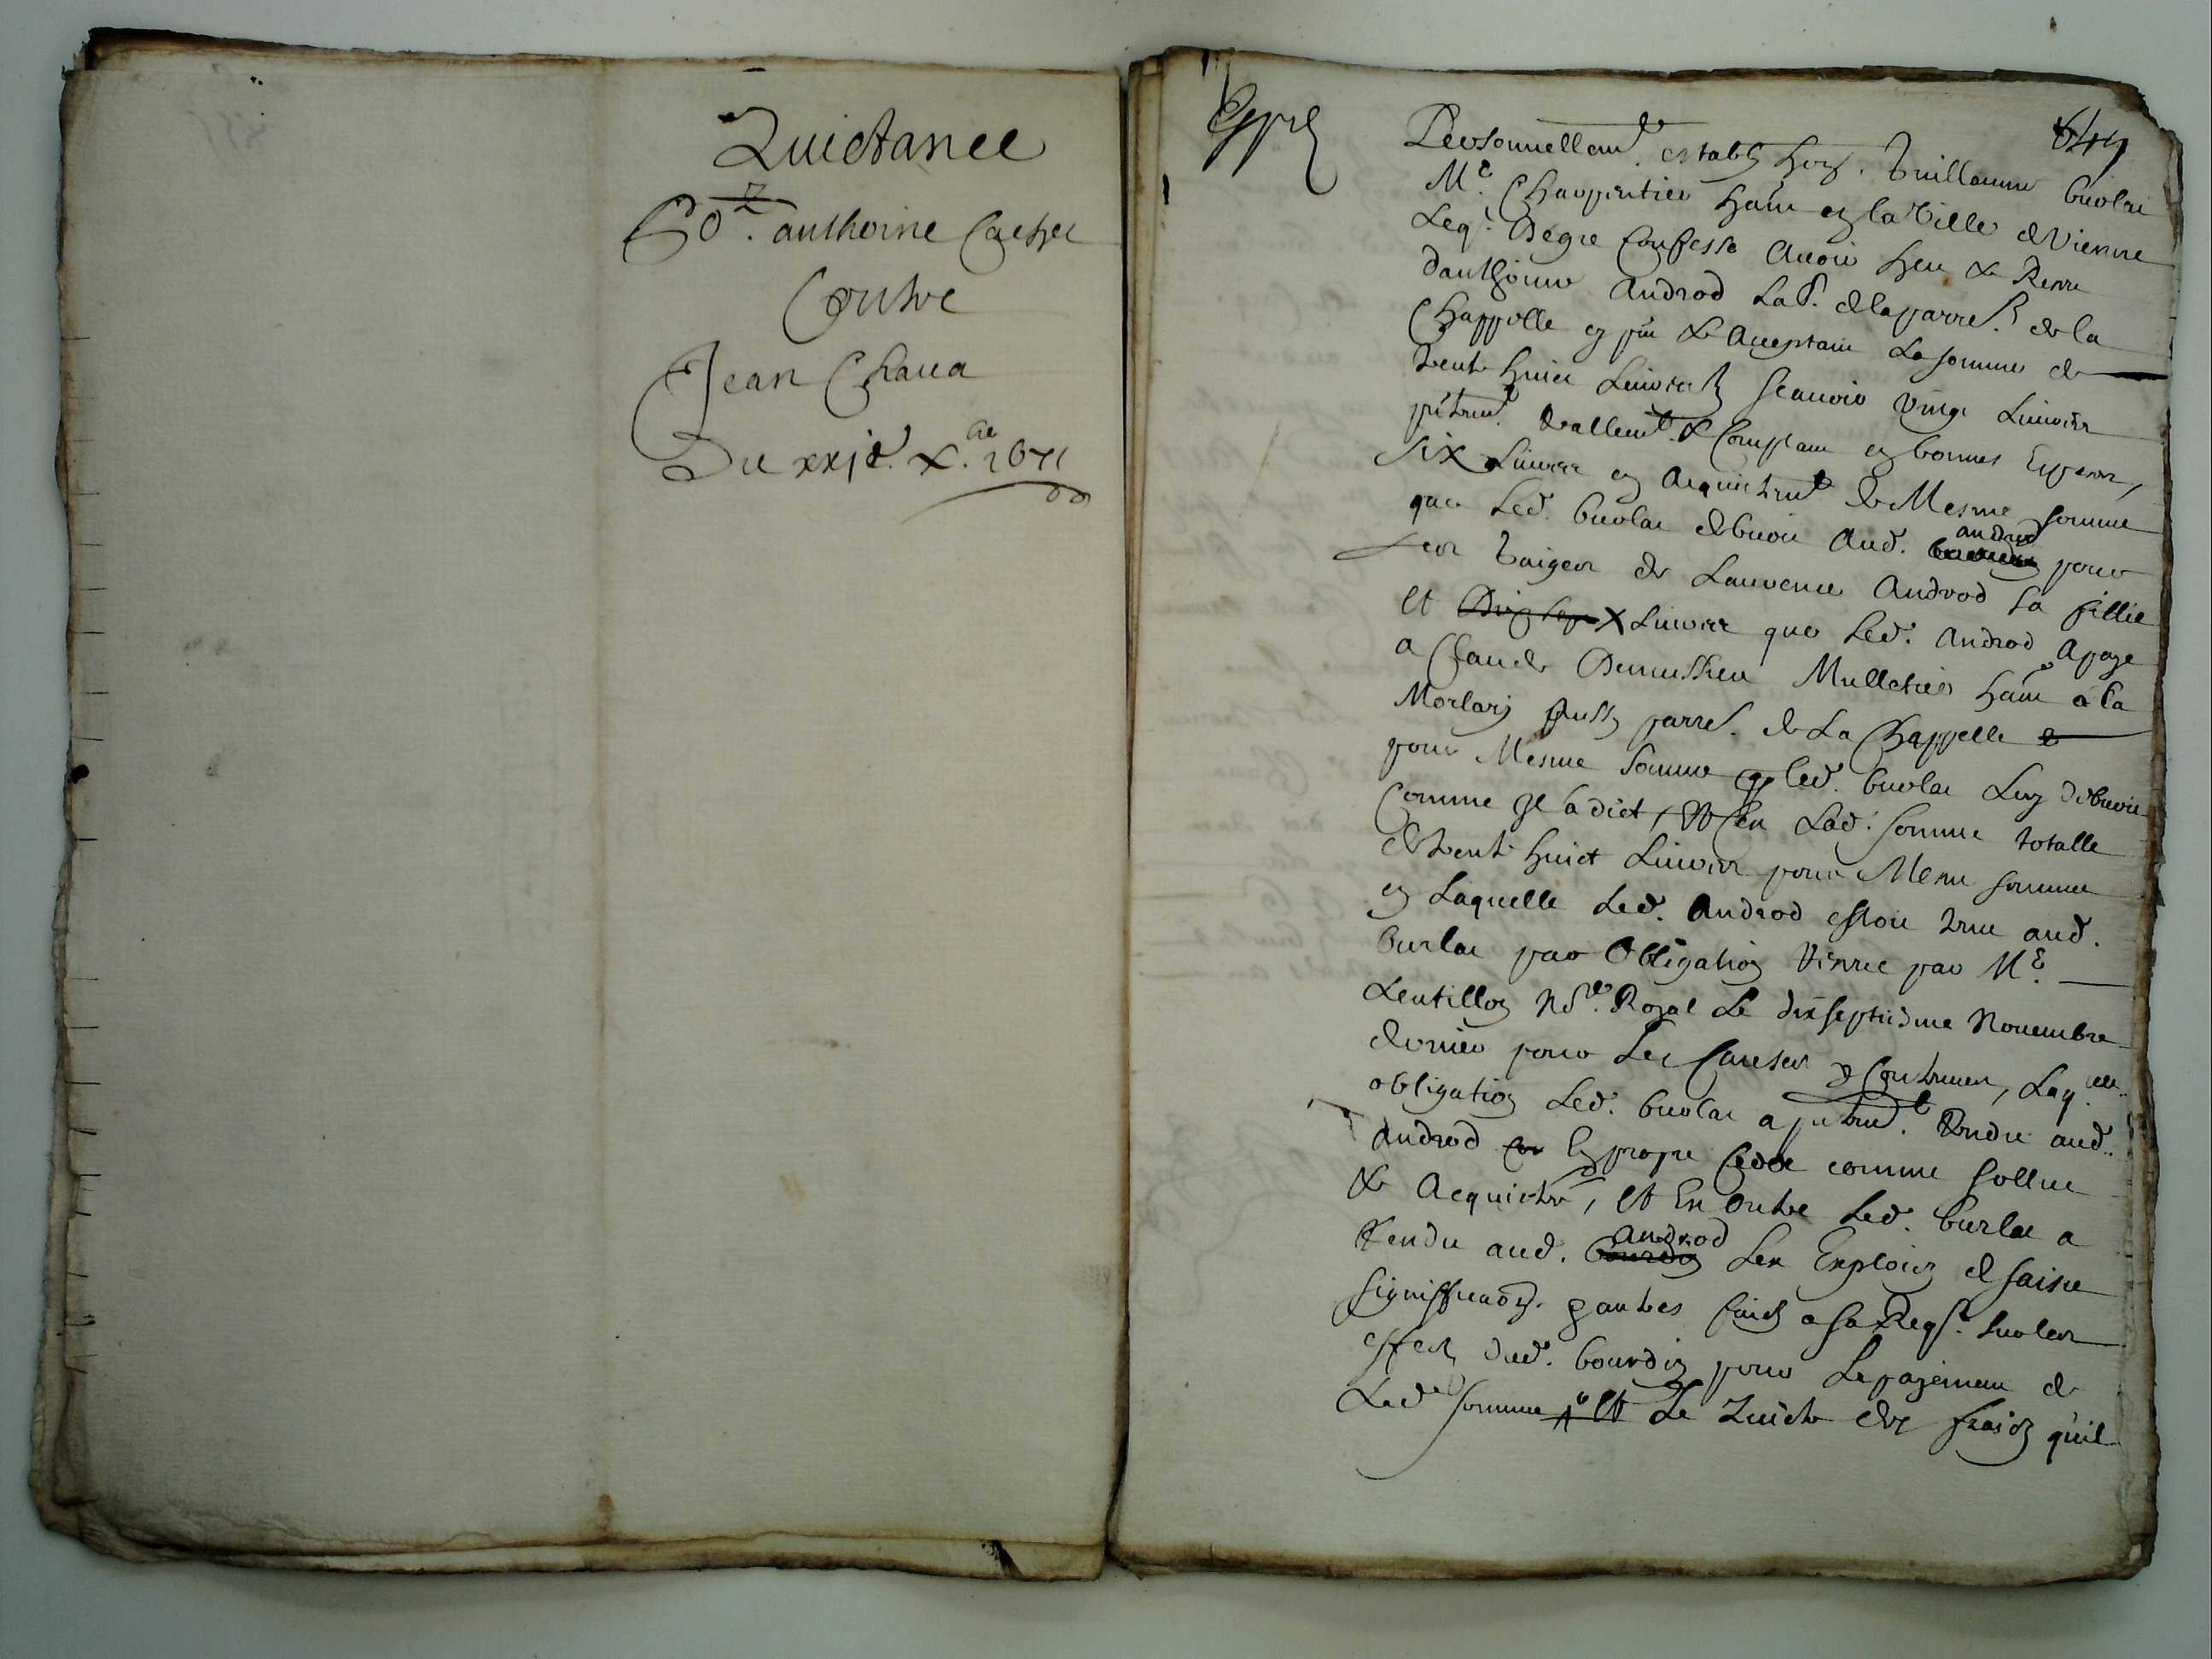 Quictance
Po.r anthoine
Contre
Jean Chaua
Du xxje. x.re 1671
649
Personnellemt. establ hon. Guillaume burlat
Me. Charpentier hant en la Ville de Vienne
Leql. de gre Confesse Auoir heu & Receu
danthoine Androd Lab. de la parre. de la
Chappelle en pnt & Acceptant La somme de
trente huict Liures Scauoir Vingt Liures
pntemt. reallemt. & Comptant en bonnes Especes,
Six Liures en Acquittemt de Mesme somme
que Led. burlat debuoit Aud. androd pour
Les Gaiges de Laurence Androd sa fillie
Et X Liures que Led. Androd A paye
a Claude Mulletier hant a la
Morlary Aussy parre. de La Chappelle
pour Mesme Somme q Led. burlat Luy debuoit
Comme Il a dict, Et Lad. somme totalle
de trente huict Liures pour Mesme somme
en Laquelle Led. Androd estoit tenu aud.
burlat par Obligation Receue par Me.
Lentillon Nore. Royal Le dixseptiesme Nouembre
dernier pour Les Causes y Contenues, Laqelle
obligation Led. burlat a pntemt. Rendu aud.
Androd En propre Cedde comme sollue
& Acquittee, Et En Outre Led. burlat a
Rendu aud. androd Les Exploicts de saisie
signiffica̅on & autres faicts a sa Reqte. sur les
effects dud. bourdin pour Le payement de
Lad. somme Et Le Quicte des fraictz quil